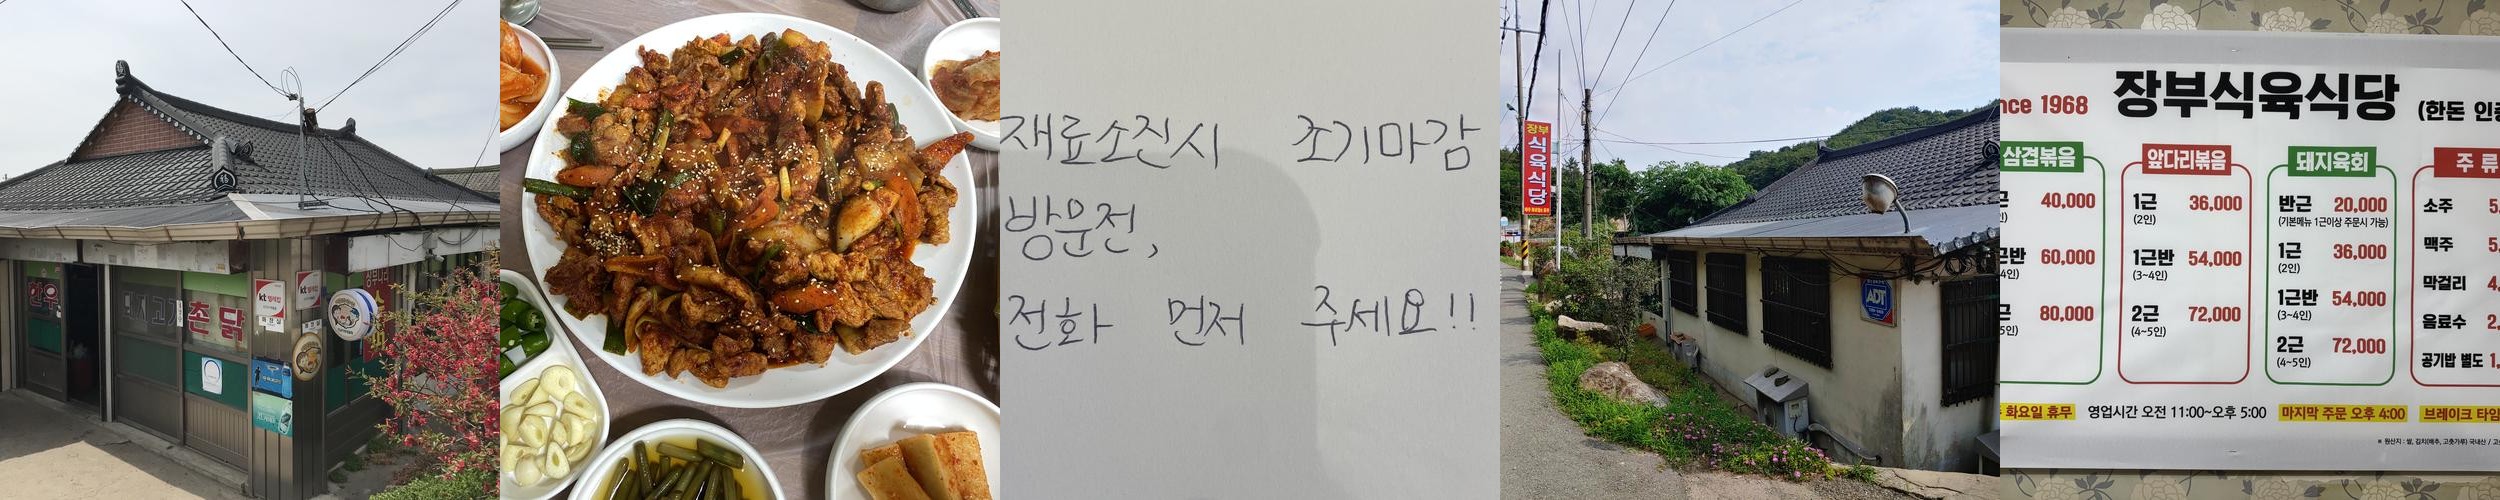 한우
돼지고기
촌닭
kt 텔레캅
kt 텔레캅
재료소진시 조기마감
방문전,
전화 먼저 주세요!!
장부
식육식당
ADT
nce 1968
장부식육식당
(한돈 인증
삼겹볶음
40,000
60,000
80,000
앞다리볶음
1근 36,000
(2인)
1근반 54,000
(3~4인)
2근 72,000
(4~5인)
돼지육회
반근 20,000
(기본메뉴 1근이상 주문시 가능)
1근 36,000
(2인)
1근반 54,000
(3~4인)
2근 72,000
(4~5인)
주 류
소주 5,
맥주 5,
막걸리 4,
음료수 2,
공기밥 별도 1,
화요일 휴무 영업시간 오전 11:00~오후 5:00 마지막 주문 오후 4:00 브레이크 타임
※ 원산지 : 쌀, 김치(배추, 고춧가루) 국내산 / 고